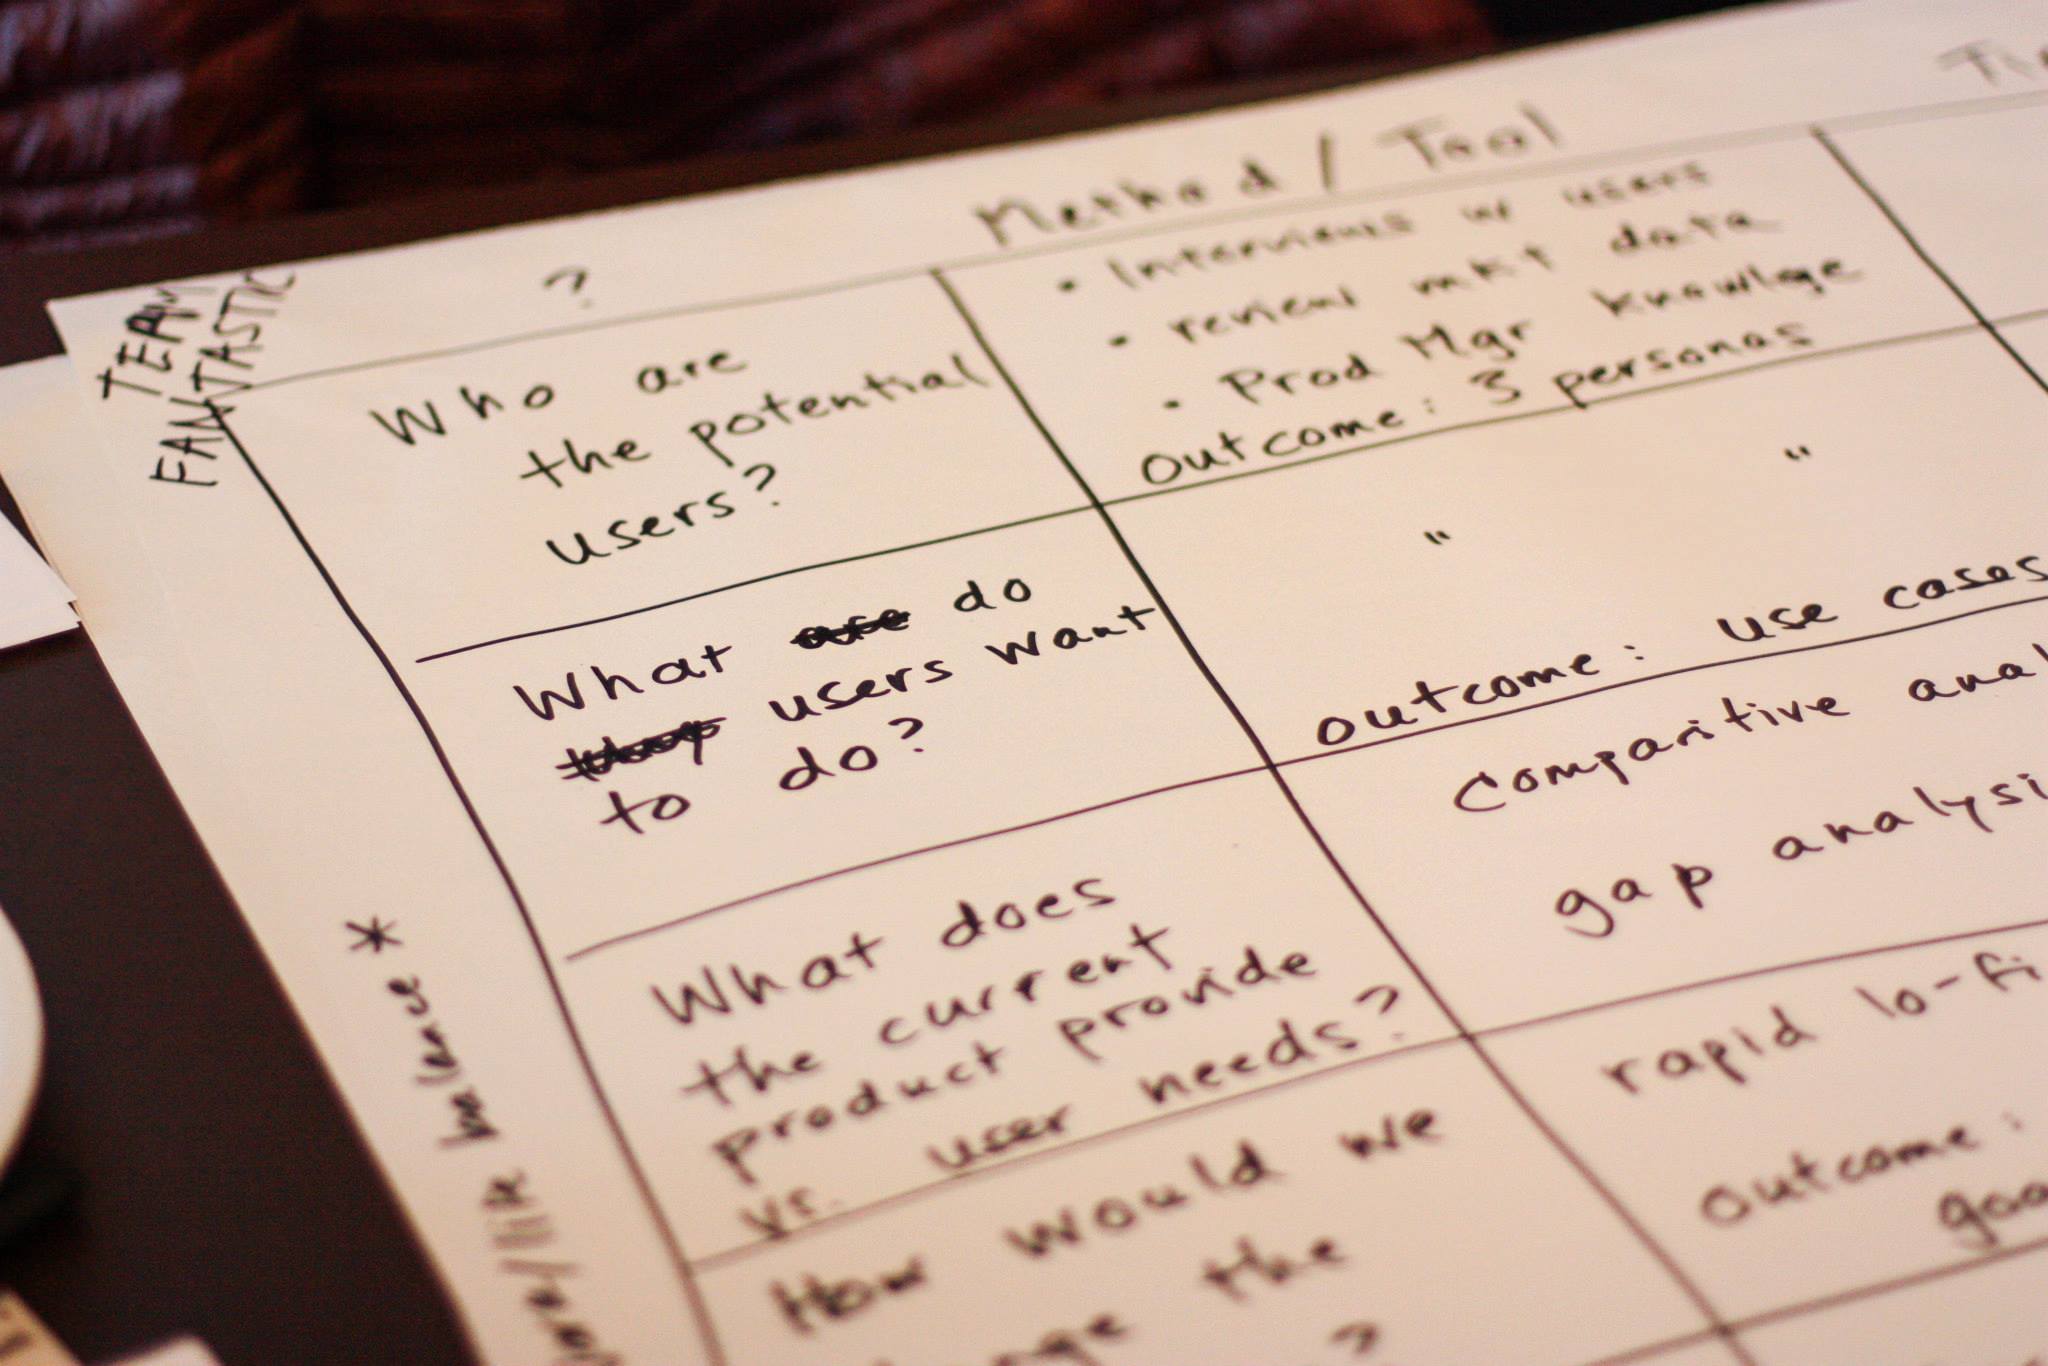 TEAM
FANTASTIC
?
Method / Tool
Who are
the potential
users?
• Interviews w users
• review mkt data
• Prod Mgr knowlege
outcome: 3 personas
What do
users want
to do?
" "
outcome: use cases
What does
the current
product provide
vs. user needs?
Comparitive
gap
How would we
the
?
rapid lo-fi
outcome:
* balance